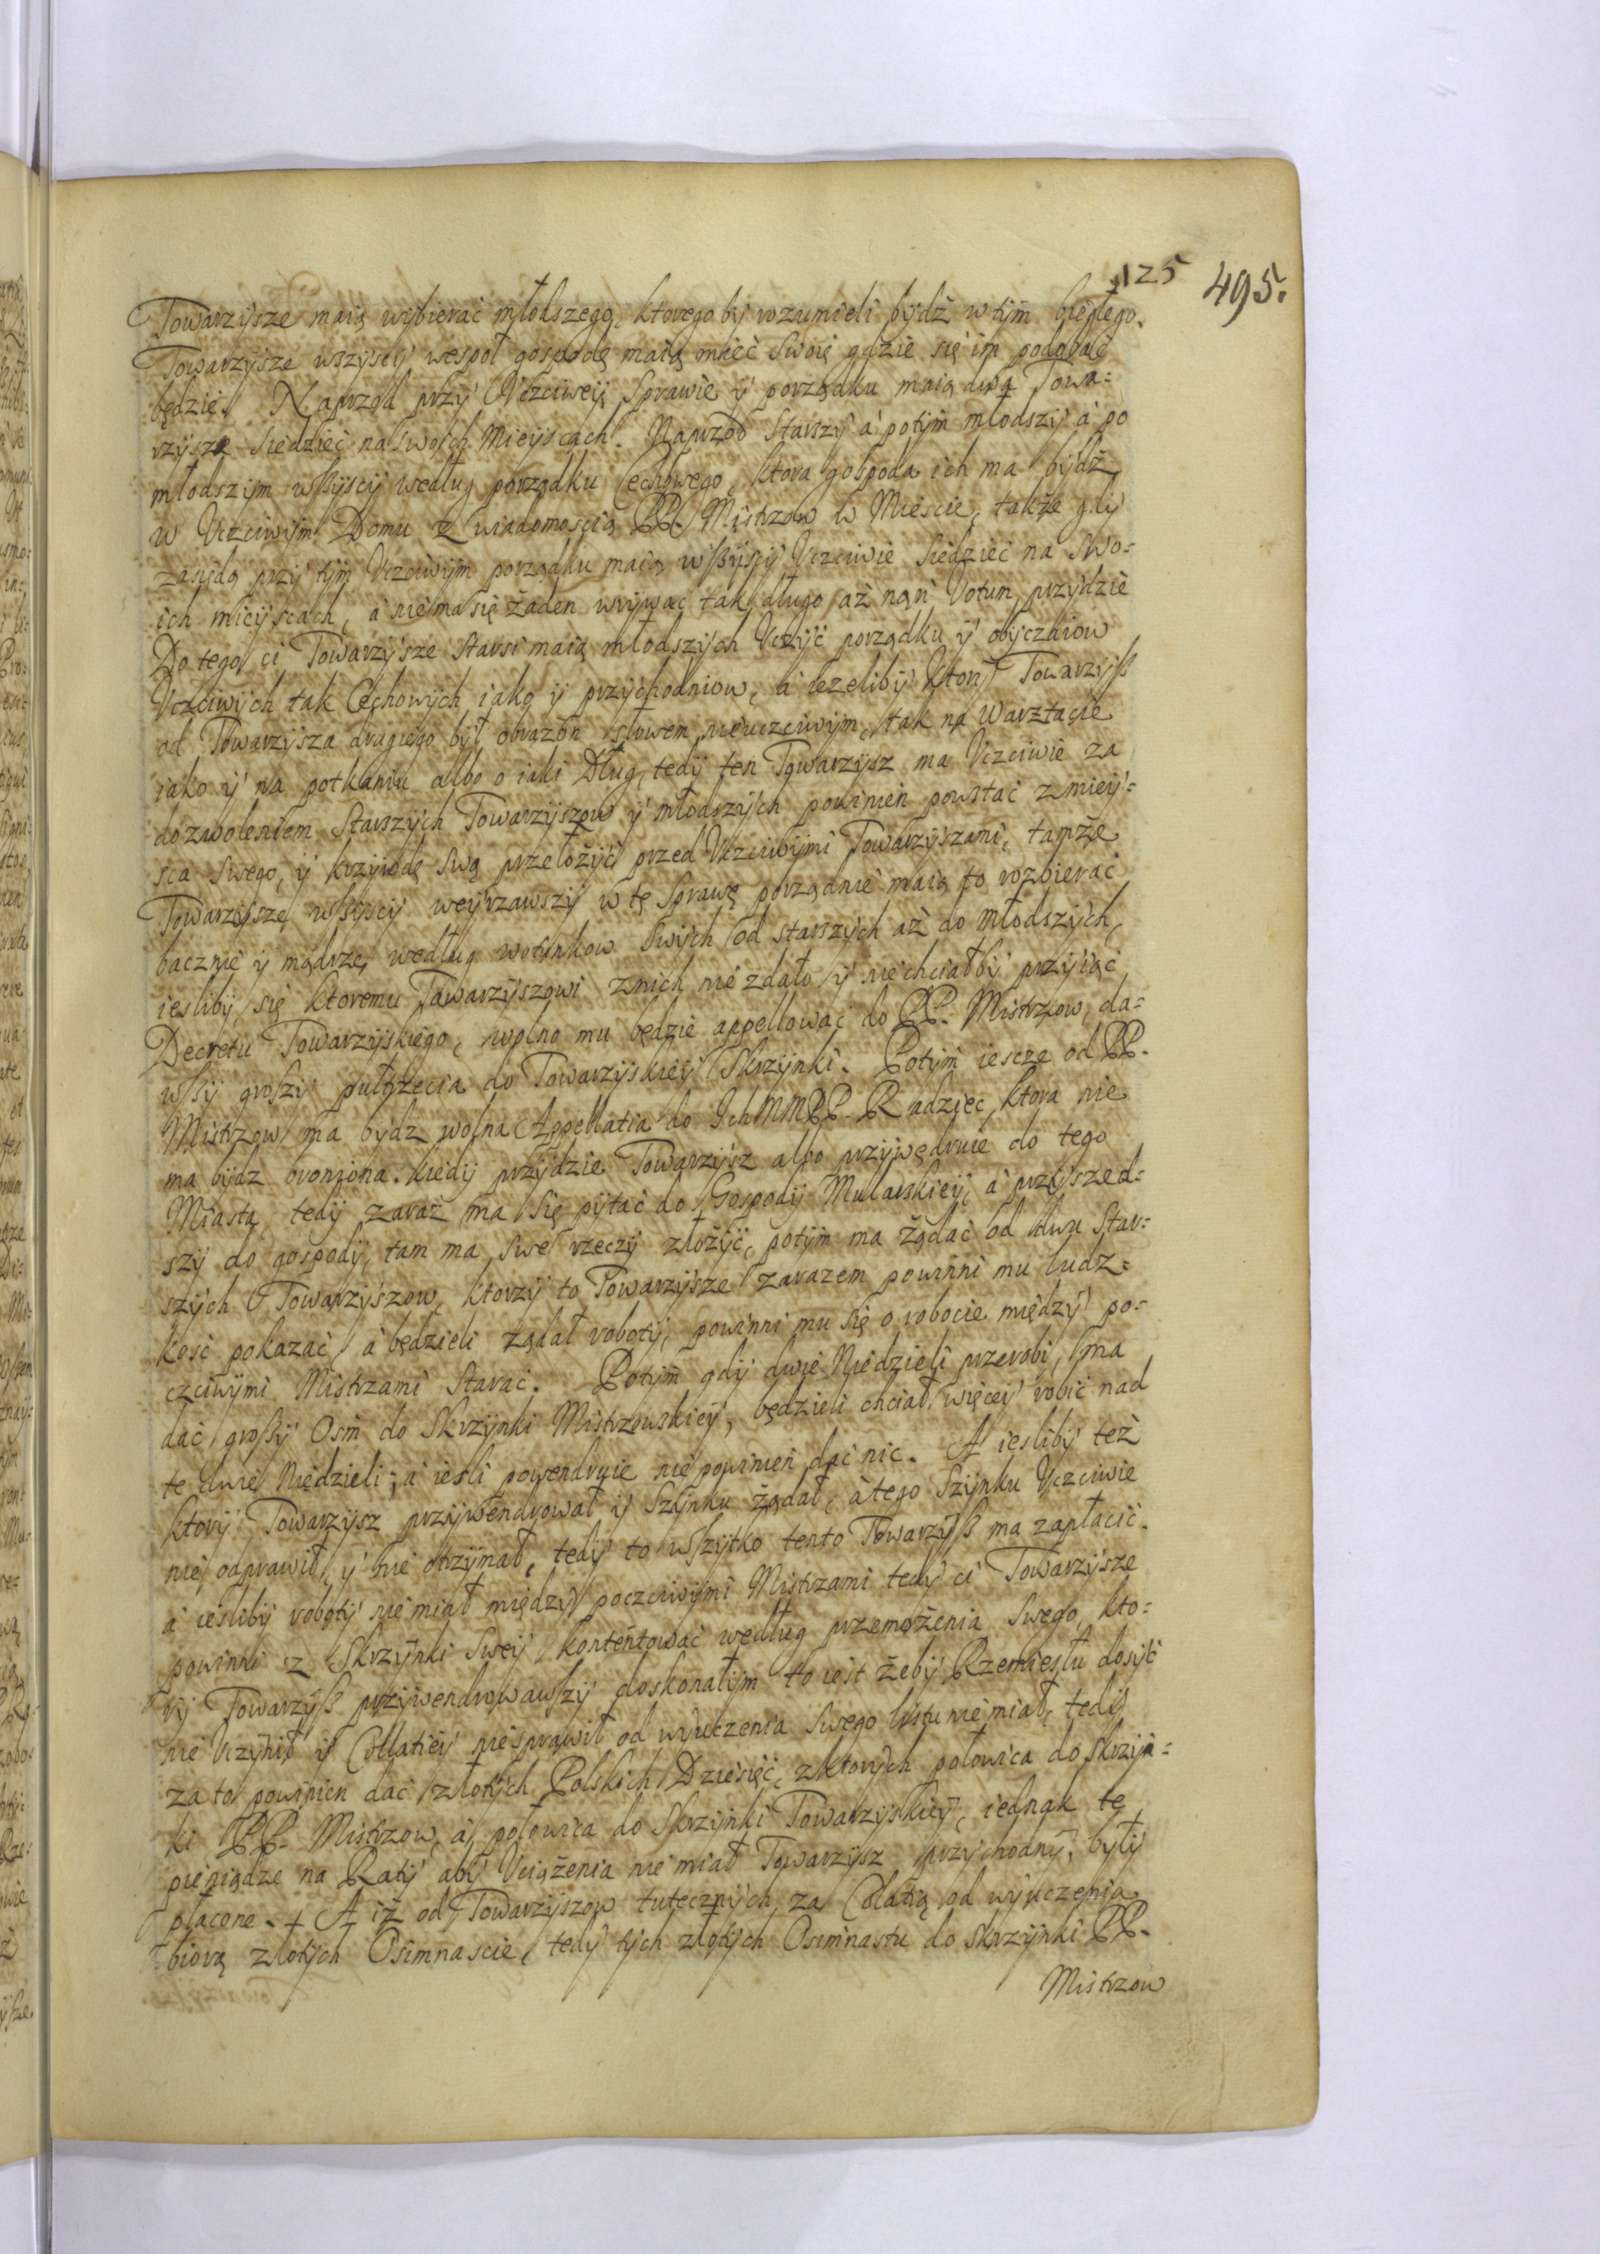 125 495.
Towarzysze maią wybierac młodszego, ktorego by rozumieli bydz w tym biegłego.
Towarzysze wszyscy wespoł gospodę maią mieć swoię gdzie się im podobać
będzie. Naprzod przy Uczciwey Sprawie y porządku maią dwa Towa=
rzysze siedzieć na swoich Mieyscach. Naprzod Starszy a potym młodszy a po
młodszym wszyscy według porządku Cechowego, ktora gospoda ich ma bydz
w Uczciwym Domu z wiadomoscią PP. Mistrzow w Miescie, także gdy
zasiędą przy tym Uczciwym porządku maią wszyscy Uczciwie siedzieć na swo=
ich mieyscach, a nie ma się żaden wrywac tak długo aż nań Votum przydzie
Do tego ci Towarzysze starsi maią młodszych Uczyć porządku y obyczaiow
Uczciwych tak Cechowych iako y przychodniow, a iezeliby ktory Towarzysz
od Towarzysza drugiego był obrazon słowem nieuczciwym, tak na Warztacie
iako y na potkaniu albo o iaki Dług, tedy ten Towarzysz ma Uczciwie za
dozwoleniem Starszych Towarzyszow y młodszych powinien powstać z miey=
sca swego, y krzywdę swą przełożyć przed Uczciwymi Towarzyszami, tamże
Towarzysze wszyscy weyrzawszy w tę Sprawę porządnie maią to rozbierać
bacznie y mądrze, według wotunkow swych od starszych aż do młodszych,
iesliby się ktoremu Towarzyszowi z nich nie zdało y nie chciałby przyiąć
Decretu Towarzyskiego, wolno mu będzie appellować do PP. Mistrzow, da=
wszy groszy pułtrzecia do Towarzyskiey Skrzynki. Potym iescze od PP.
Mistrzow ma bydz wolna Appellatia do Ich MM PP. Radziec, ktora nie
ma bydz broniona. kiedy przydzie Towarzysz albo przywędruie do tego
Miasta, tedy zaraz ma się pytać do Gospody Mularskiey, a przyszed=
szy do gospody, tam ma swe rzeczy złożyć, potym ma żądać od dwu Star=
szych Towarzyszow, ktorzy to Towarzysze zarazem powinni mu ludz=
kość pokazać, a będzieli ządał roboty, powinni mu się o robocie między po=
czciwymi Mistrzami starac. Potym gdy dwie Niedzieli przerobi, ma
dać groszy Osm do Skrzynki Mistrzowskiey, będzieli chciał więcey robić nad
te dwie Niedzieli; a iesli powendruie nie powinien dac nic. A iesliby też
ktory Towarzysz przywendrował y Szynku żądał, a tego Szynku Uczciwie
nie odprawił, y nie otrzymał, tedy to wszytko tento Towarzysz ma zapłacić.
a iesliby roboty nie miał między poczciwymi Mistrzami tedy ci Towarzysze
powinni z Skrzynki swey kontentować według przemożenia swego, kto=
ry Towarzysz przywendrowawszy doskonałym to iest żeby Rzemiesłu dosyć
nie Uczynił y Collatiey nie sprawił od wyuczenia swego listu nie miał, tedy
za to powinien dać złotych Polskich Dziesięć, z ktorych połowica do skrzyn=
ki PP. Mistrzow, a połowica do Skrzynki Towarzyskiey, iednak te
pieniądze na Raty aby Uciążenia nie miał Towarzysz przychodny, były
płacone. + A iż od Towarzyszow tutecznych za Collatią od wyuczenia
biorą złotych Osimnascie, tedy tych złotych Osimnastu do skrzynki PP.
Mistrzow